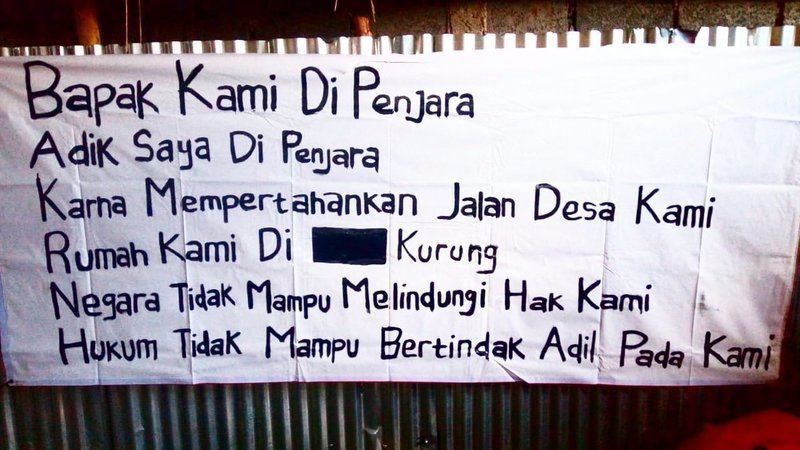 Bapak Kami Di Penjara
Adik Saya Di Penjara
Karna Mempertahankan Jalan Desa Kami
Rumah Kami Di Kurung
Negara Tidak Mampu Melindungi Hak Kami
Hukum Tidak Mampu Bertindak Adil Pada Kami